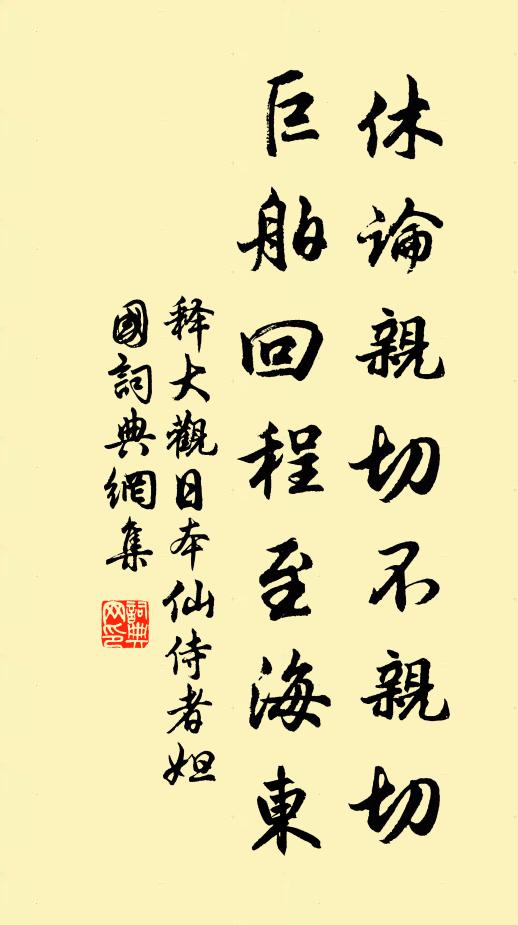 休論親切不親切
巨舶回程至海東
释大觀日本仙侍者妲
國詞典網集
詞典網印